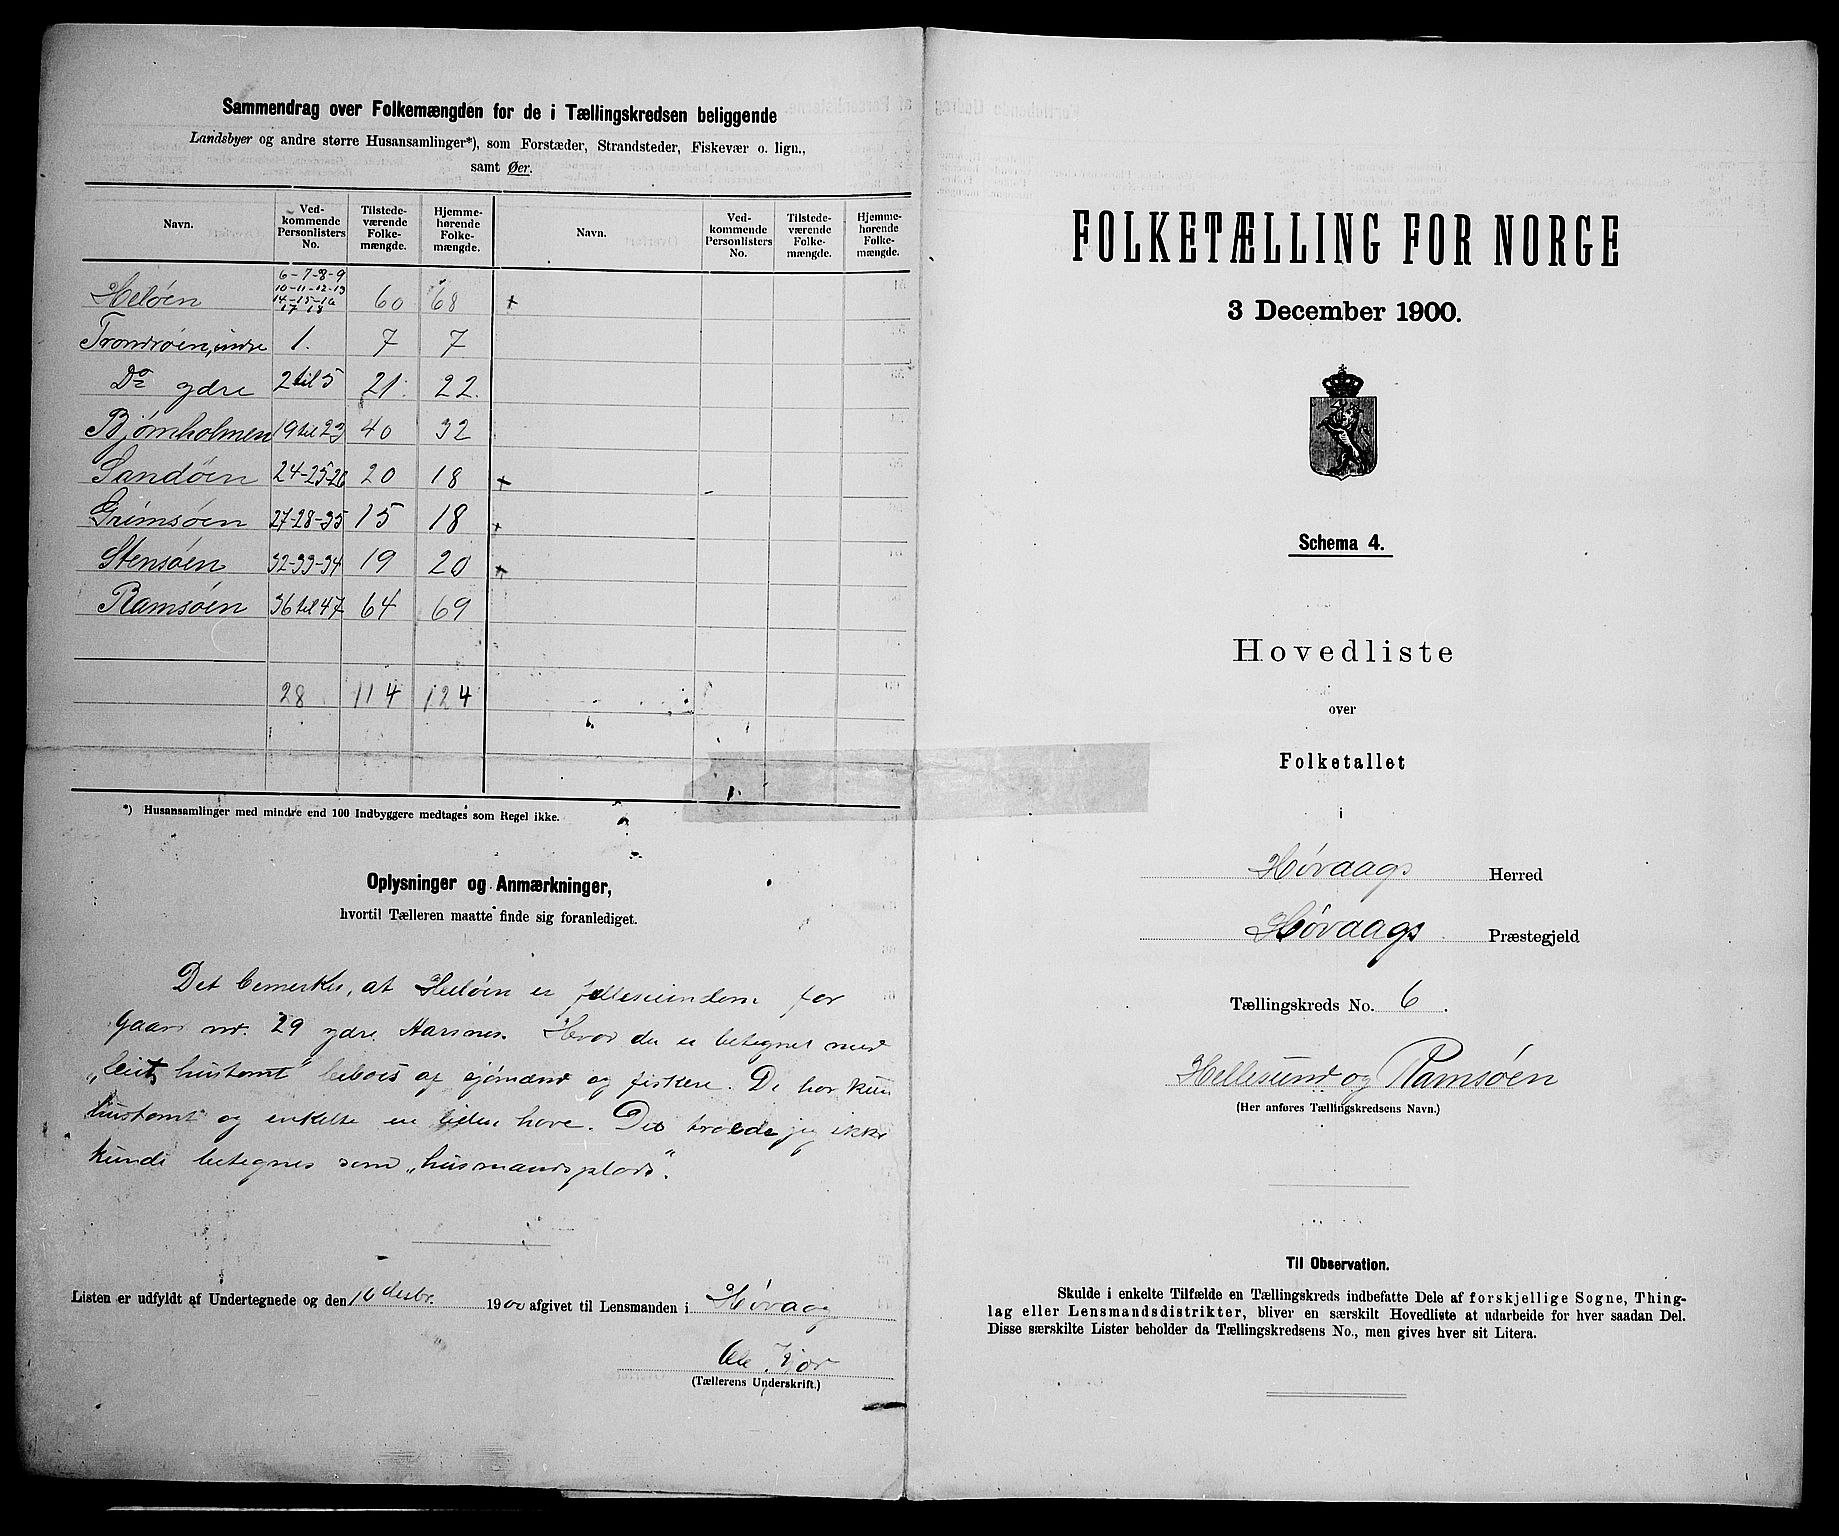 Sammendrag over Folkemængden for de i Tællingskredsen beliggende
Landsbyer og andre større Husansamlinger*), som Forstæder, Strandsteder, Fiskevær o. lign.,
samt Øer.
Navn. Ved-kommende Personlisters No. Tilstede-værende Folke-mængde. Hjemme-hørende Folke-mængde. Navn. Ved-kommende Personlisters No. Tilstede-værende Folke-mængde. Hjemme-hørende Folke-mængde.
Heløen 6-7-8-9 10-11-12-13 14-15-16 17 18 60 68 +
Trondsøen, indre 1. 7 7
Do ydre 2 til 5 21. 22.
Bjørnholmen 19 til 23 40 32
Sandøen 24-25-26 20 18 +
Grimsøen 27-28-35 15 18 +
Stensøen 32-33-34 19 20 +
Ramsøen 36 til 47 64 69
28 114 124
*) Husansamlinger med mindre end 100 Indbyggere medtages som Regel ikke.
Oplysninger og Anmærkninger,
hvortil Tælleren maatte finde sig foranlediget.
Det bemerkes, at Heløen er felleseiendom for
gaard nr. 29 ydre Aarsnes. Hvor der er betegnet med
„leiet hustomt" beboes af sjømænd og fiskere. De har kun
hustomt og enkelte en liden have. Det troede jeg ikke
kunde betegnes som „husmandsplads".
Listen er udfyldt af Undertegnede og den 10 desbr. 1900 afgivet til Lensmanden i Høvaag
Ole
(Tællerens Underskrift.)
FOLKETÆLLING FOR NORGE
3 December 1900.
Schema 4.
Hovedliste
over
Folketallet
i
Høvaags Herred
Høvaags Præstegjeld
Tællingskreds No. 6.
Hellesund og Ramsøen
(Her anføres Tællingskredsens Navn.)
Til Observation.
Skulde i enkelte Tilfælde en Tællingskreds indbefatte Dele af forskjellige Sogne, Thing-
lag eller Lensmandsdistrikter, bliver en særskilt Hovedliste at udarbeide for hver saadan Del.
Disse særskilte Lister beholder da Tællingskredsens No., men gives hver sit Litera.